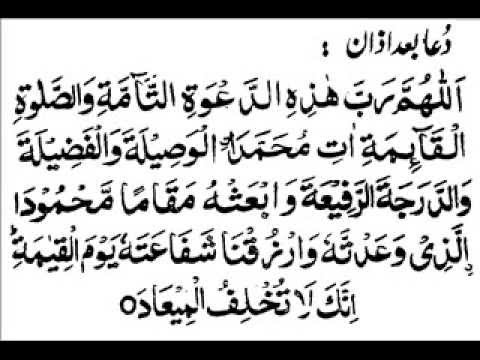 دُعا بعد اذان :
اَللّٰهُمَّ رَبَّ هٰذِهِ الدَّعْوَةِ التَّآمَّةِ وَالصَّلٰوةِ
الْقَآئِمَةِ اٰتِ مُحَمَّدَاِ۟لْوَصِيْلَةَ وَالْفَضِيْلَةَ
وَالدَّرَجَةَ الرَّفِيْعَةَ وَابْعَثْهُ مَقَامًا مَّحْمُوْدَا
۟لَّذِىْ وَعَدْتَّهٗ وَارْزُقْنَا شَفَاعَتَهٗ يَوْمَ الْقِيٰمَةِ ؕ
اِنَّكَ لَا تُخْلِفُ الْمِيْعَادَ ○